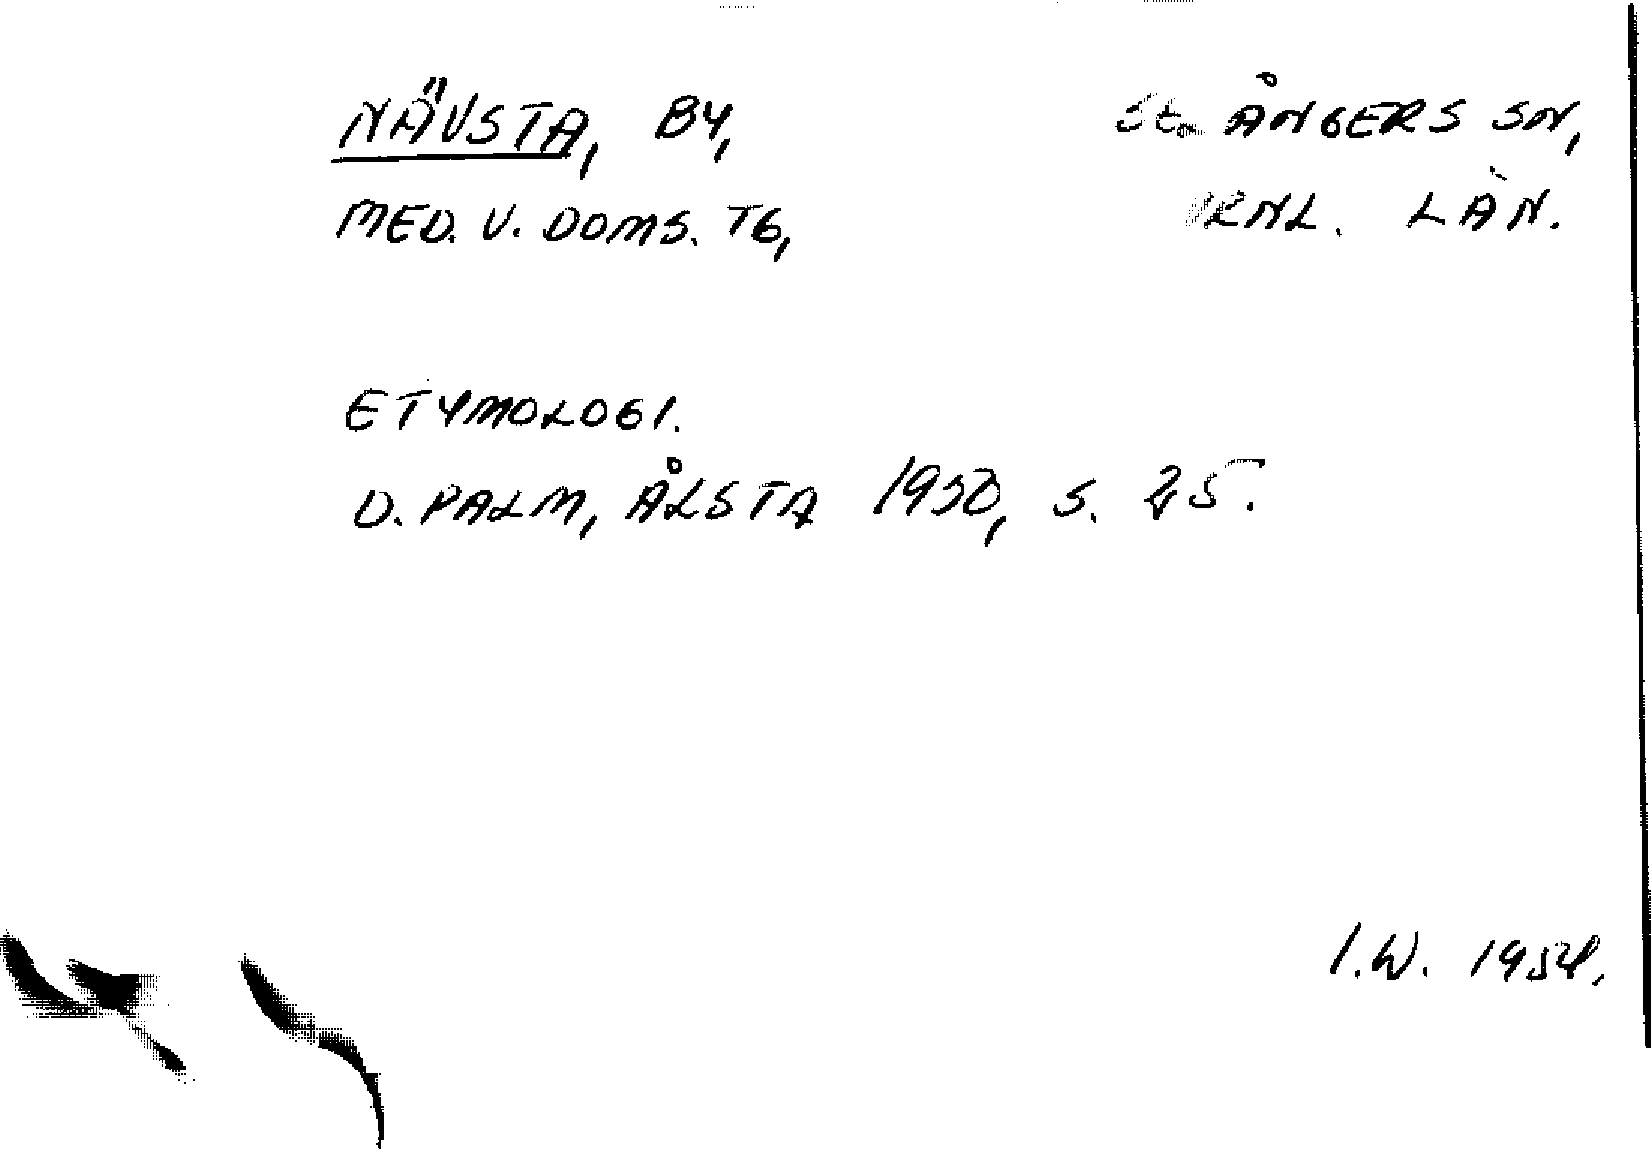 NÄVSTA, BY, St. ÅNGERS SN,
MED. V. DOMS. TG, VRNL. LÄN.
ETYMOLOGI.
D. PALM, ÅLSTA 1950, S.
I.W. 1954.